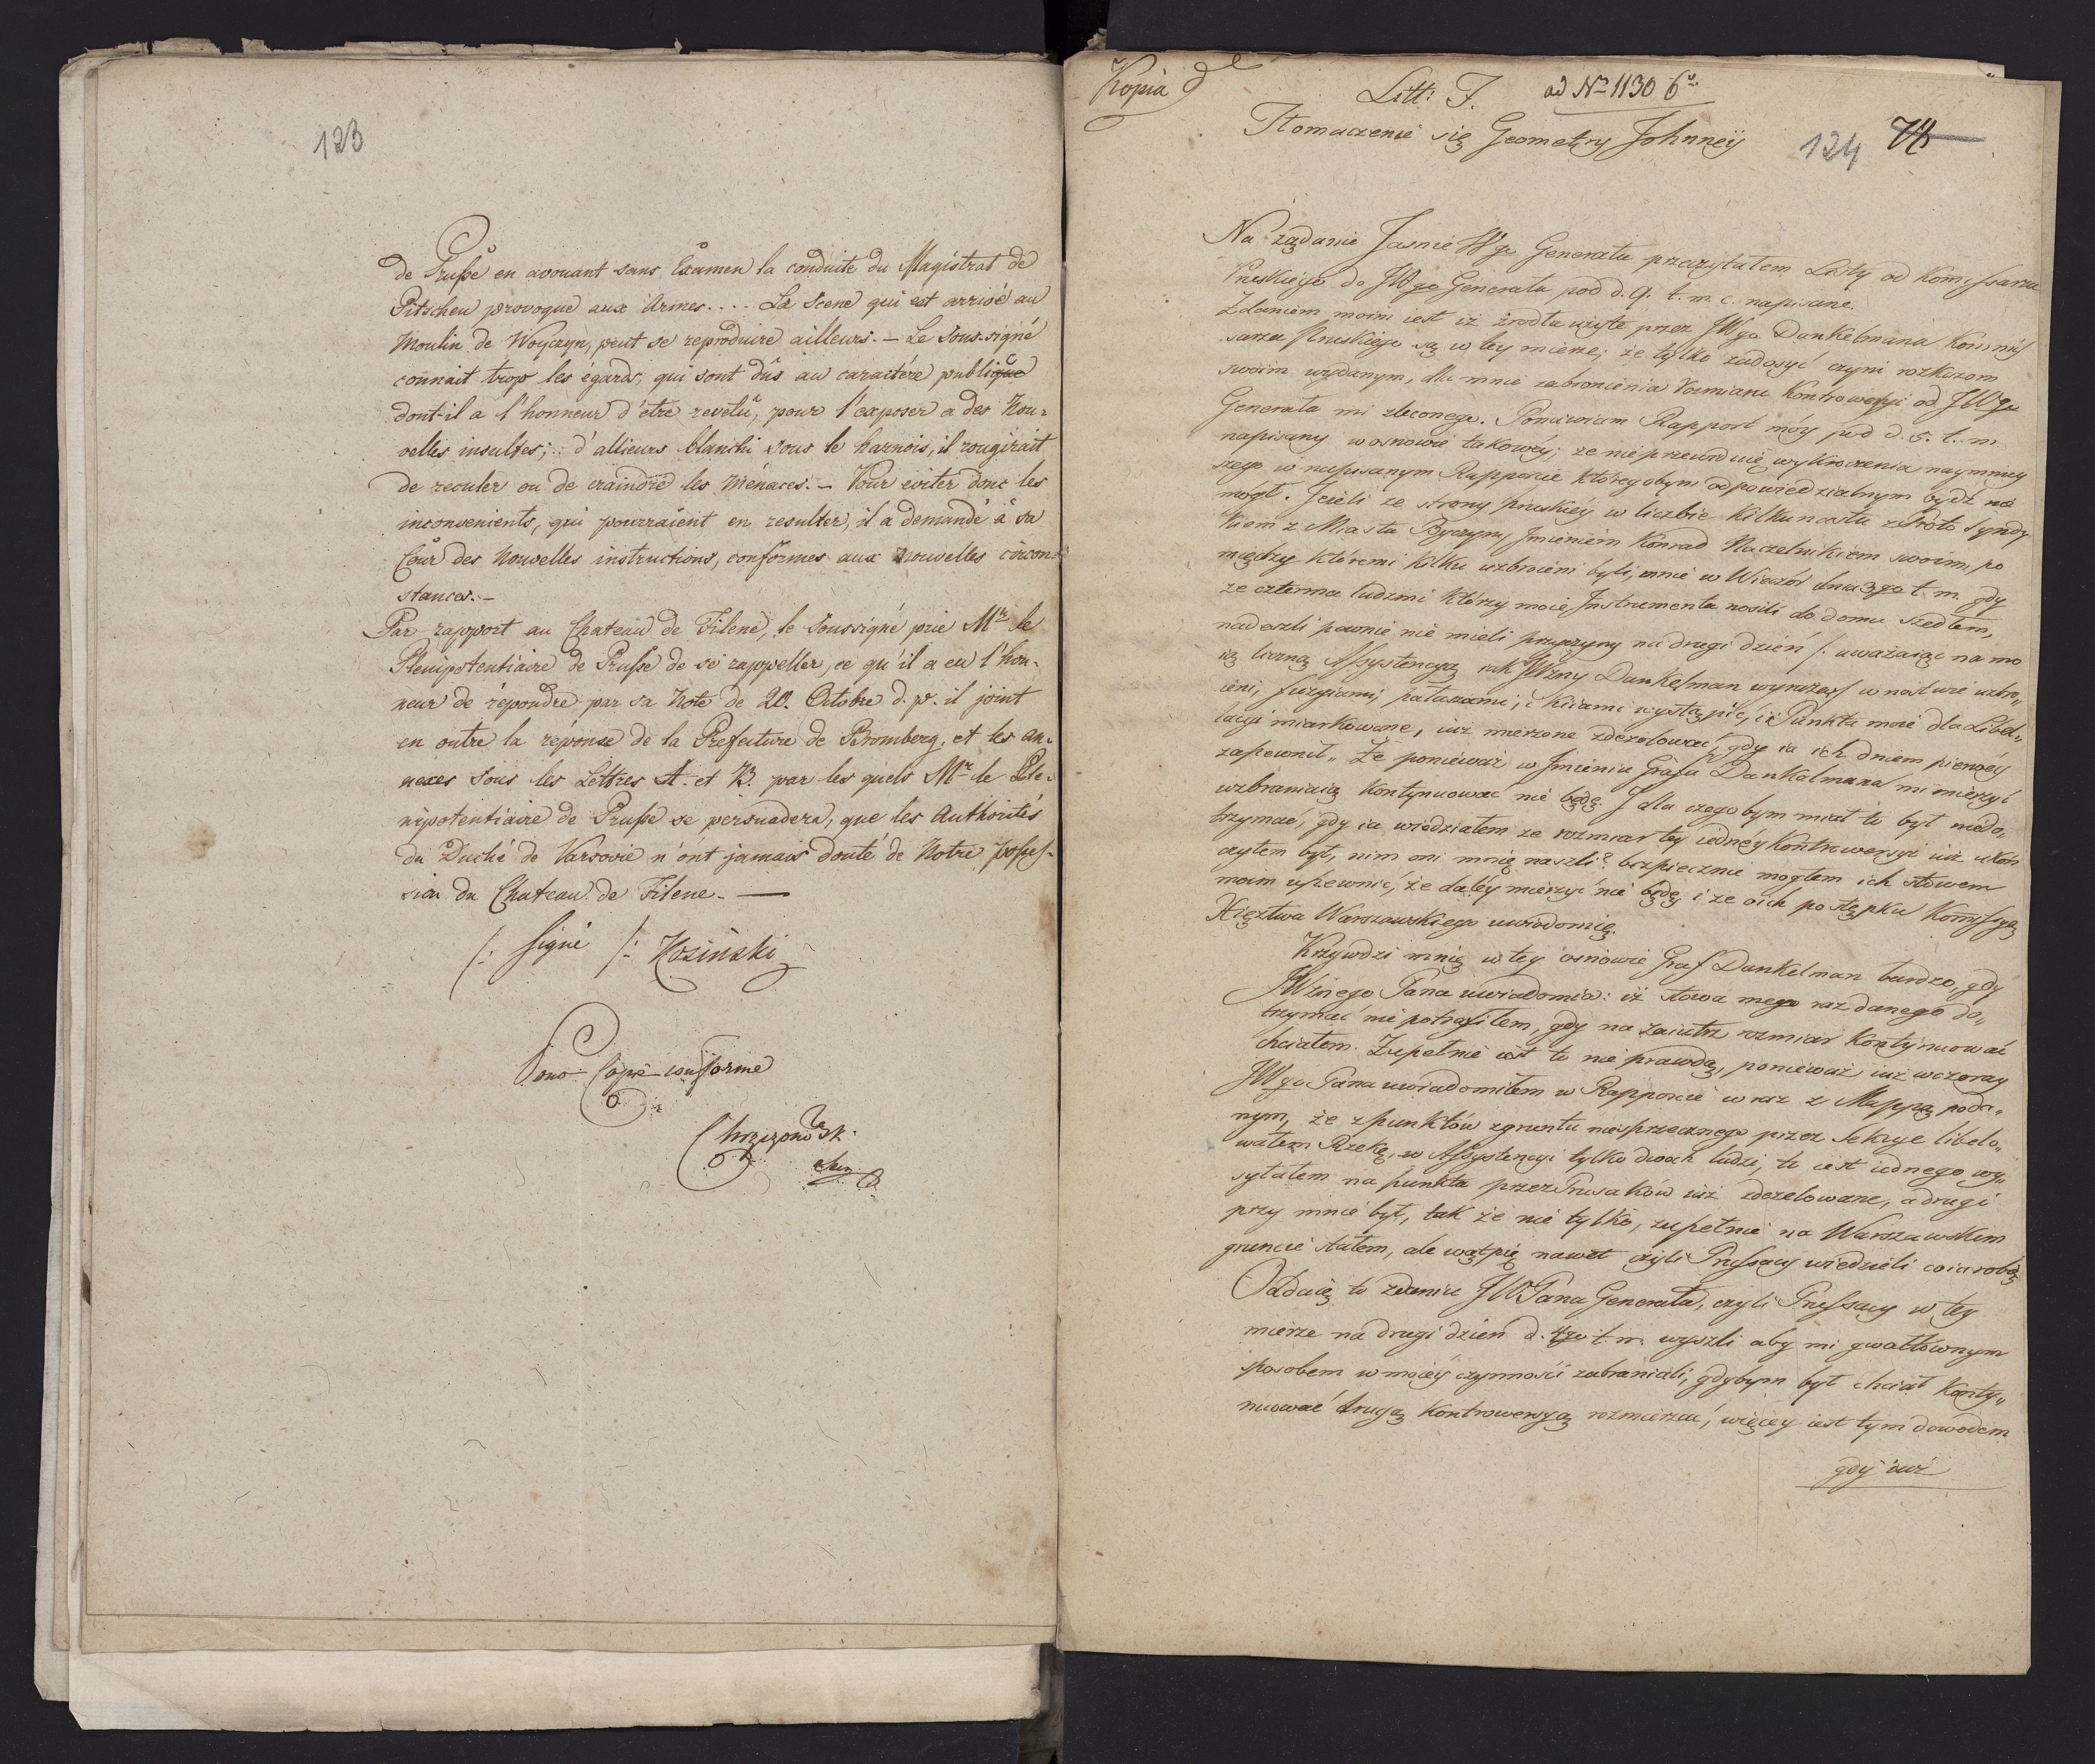 123
de Prusse en avouant sans Examen la conduite du Magistrat de
Pitschen provoque aux Armes.... La Scene qui est arrivé au
Moulin de Woyczyn, peut se reproduire ailleurs. – Le Sous-signé
connait trop les égards, qui sont dûs au caractére publique
dont-il a l'honneur d'etre revetû, pour l'exposer a des Nou=
velles insultes; d'allieurs blanchi sous le harnois, il rougirait
de reculer ou de craindre les Ménaces. – Pour eviter donc les
inconvenients, qui pourraient en resulter, il a demandé à sa
Cour des Nouvelles instructions, conformes aux nouvelles circon=
stances. –
Par rapport au Chateau de Filene, le Soussigné prie Mr le
Plenipotentiaire de Prusse de se rappeller, ce qu'il a eu l'hon-
neur de répondre par sa Note de 20. Octobre d. p. il joint
en outre la réponse de la Prefecture de Bromberg, et les an-
nexes sous les Lettres A. et B. par les quels Mr le Ple-
nipotentiaire de Prusse se persuadera, que les Authorités
du Duché de Varsovie n'ont jamais douté de Notre posses-
sion du Chateau de Filene. —
/: Signé /: Kosinski
Pour Copie conforme
Chrzzonowsk
Kopia
Litt: F. ad No 1130 6
Tłomaczenie się Geometry Johnneÿ
124 74
Na żądanie Jasnie Wgo Generała przeczytałem Listy od Kommissarza
Pruskiego do JWgo Generała pod d. 9. t. m. c. napisane.
Zdaniem moim iest iż źrodła użyte przez JWgo Dankelmana Kommis
sarza Pruskiego są w tey mierze; że tylko zadosyć czyni rozkazom
swoim wydanym, dla mnie zabronienia Rozmiaru Kontrowersyi od JWgo
Generała mi zleconego. Ponawiam Rapport móy pod d. 5. t. m.
napisany w osnowie takowéy; że nieprzewodnię wykroczenia naymniey
szego w napisanym Rapporcie któregobym odpowiedzialnym bydź nie
mógł. Jeżeli ze strony pruskiéy w liczbie kilkunastu z Proto Syndy
kiem z Miasta Byczyny Jmieniem Konrad Naczelnikiem swoim, po
między któremi kilku uzbroieni byli, mnie w Wieczór dnia 3go t. m. gdy
ze czterma ludzmi którzy moie Jnstrumenta nosili do domu szedłem,
nadeszli pewnie nie mieli przyczyny na drugi dzień /: uważaiąc na mo
ią liczną Assystencyą iak JWżny Dankelman wyraża :/ w nosturé uzbro„
ieni, fuzyiami, pałaszami, i kiiami wystąpić, i Punkta moie dla Libel„
lacyi miarkowane, iuż mierzone zdezelować, gdy ia ich dniem pierwéy
zapewnił„ Że ponieważ w Jmieniu Grafa Dankalmana mi mierzyć
wzbraniaią kontynuować nie będę. J dla czego bym miał to był niedo„
trzymać, gdy ia wiedziałem ze rozmiar tey iednéy Kontrowersyi iuż ukoń
czyłem był, nim oni mnię naszli? bezpiecznie mogłem ich słowem
moim upewnić, że daléy mierzyć nie będę, i ze oich postępku Kommissyą
Xięztwa Warszawskiego uwiadomię.
Krzywdzi mnię w tey osnowie Graf Dankelman bardzo, gdy
JWżnego Pana uwiadomia: iż słowa mego raz danego do„
trzymać nie potrafiłem, gdy na zaiutrz rozmiar Kontynuować
chciałem. Zupełnie iest to nie prawdą, ponieważ iuż wczoray
JWgo Pana uwiadomiłem w Rapporcie wraz z Mappą poda„
nym, że z punktów zgruntu niesprzecznego przez Sekcye libelo„
wałem Rzekę, w Assystencyi tylko dwoch ludzi, to iest iednego wy„
syłałem na punkta przez Prusaków iuż zdezelowane, a drugi
przy mnie był, tak że nie tylko, zupełnie na Warszawskim
gruncie stałem, ale wątpię nawet czyli Prussacy wiedzieli co ia robię
Oddaię to zdaniu JWPana Generała, czyli Prussacy w tey
mierze na drugi dzień d. 4go t. m. wyszli aby mi gwałtownym
sposobem w moiéy czynności zabraniali, gdybym był chciał Konty„
nuować drugą Kontrowersyą rozmierzać, więcey iest tym dowodem
gdy iuż